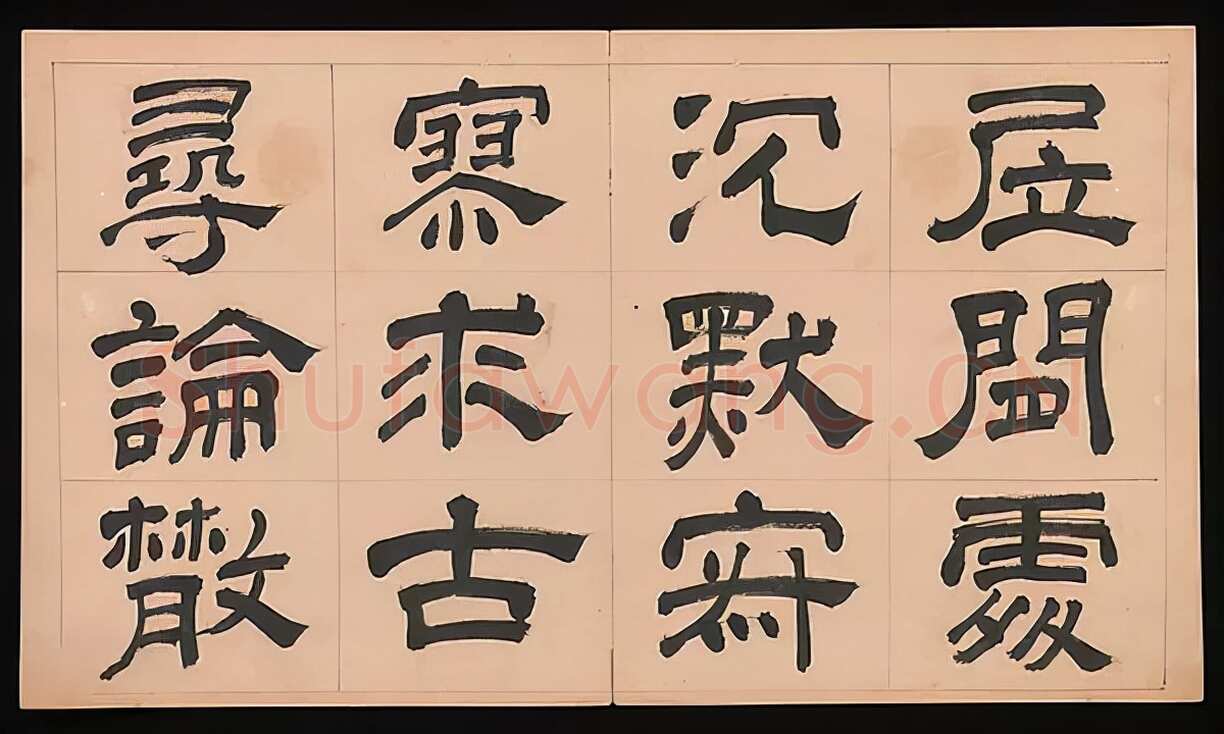 居閒處
沉默寂
寥求古
尋論散
Shufawang.CN